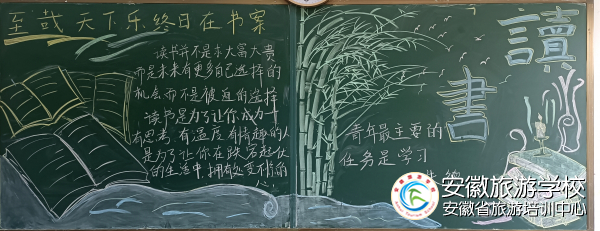 至哉天下乐终日在书案
读书并不是求大富大贵
而是未来有更多自己选择的
机会而不是被迫的选择
读书是为了让你成为一个
有思考,有温度有情趣的人
是为了让你在跌宕起伏
的生活中,拥有处变不惊的
心
讀
書
青年最主要的
任务是学习
安徽旅游学校
安徽省旅游培训中心